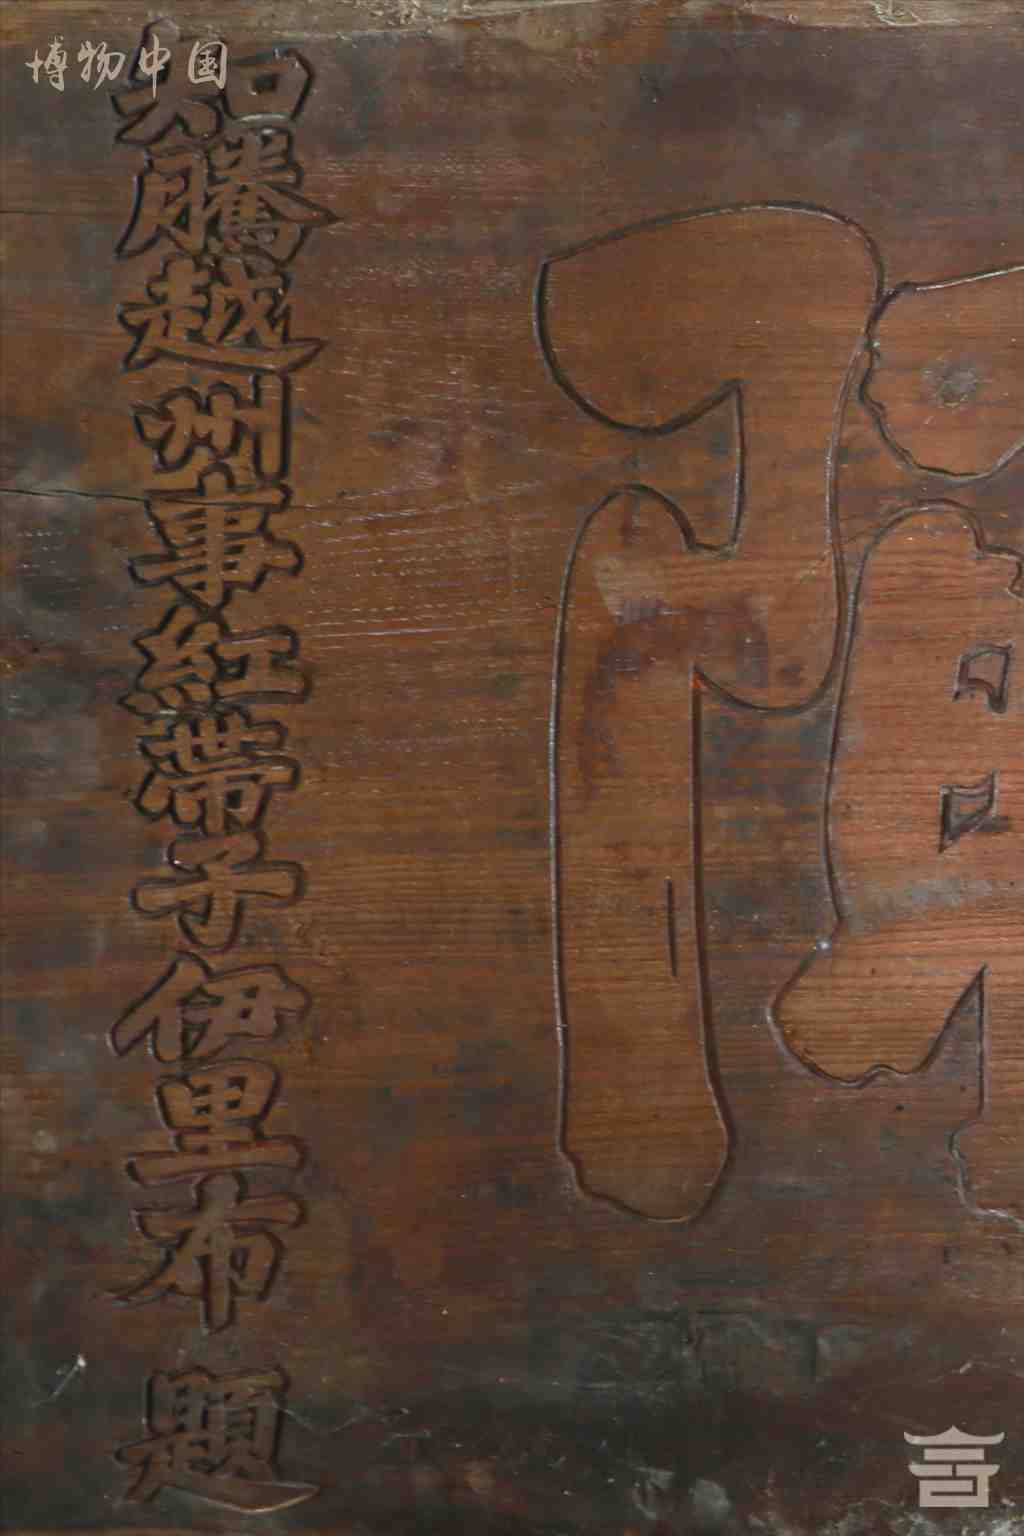 博物中国
知騰越州事紅帶子伊里布題